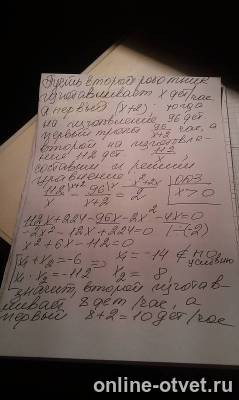 Пусть второй работник
изготавливает x дет/час
а первый (x+2), тогда
на изготовление 96 дет
первый трат 96/x+2 час, а
второй на изготовле-
ние 112 дет 112/x.
составим и решим
уравнение
112/x - 96/x+2 = 2 ОДЗ x>0
112x+224-96x-2x²-4x=0
-2x²+12x+224=0 |:(-2)
x²+6x-112=0
x₁+x₂=-6 ⇒ x₁=-14 ∉ по условию
x₁·x₂=-112 x₂=8
значит, второй изготав-
ливает 8 дет/час, а
первый 8+2=10 дет/час
online-otvet.ru